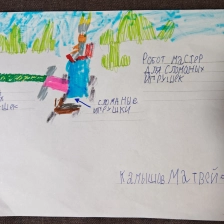 РОБОТ МАСТЕР
ДЛЯ СЛОМАНЫХ
ИГРУШЕК
СЛОМАНЫЕ
ИГРУШКИ
Камышев Матвей